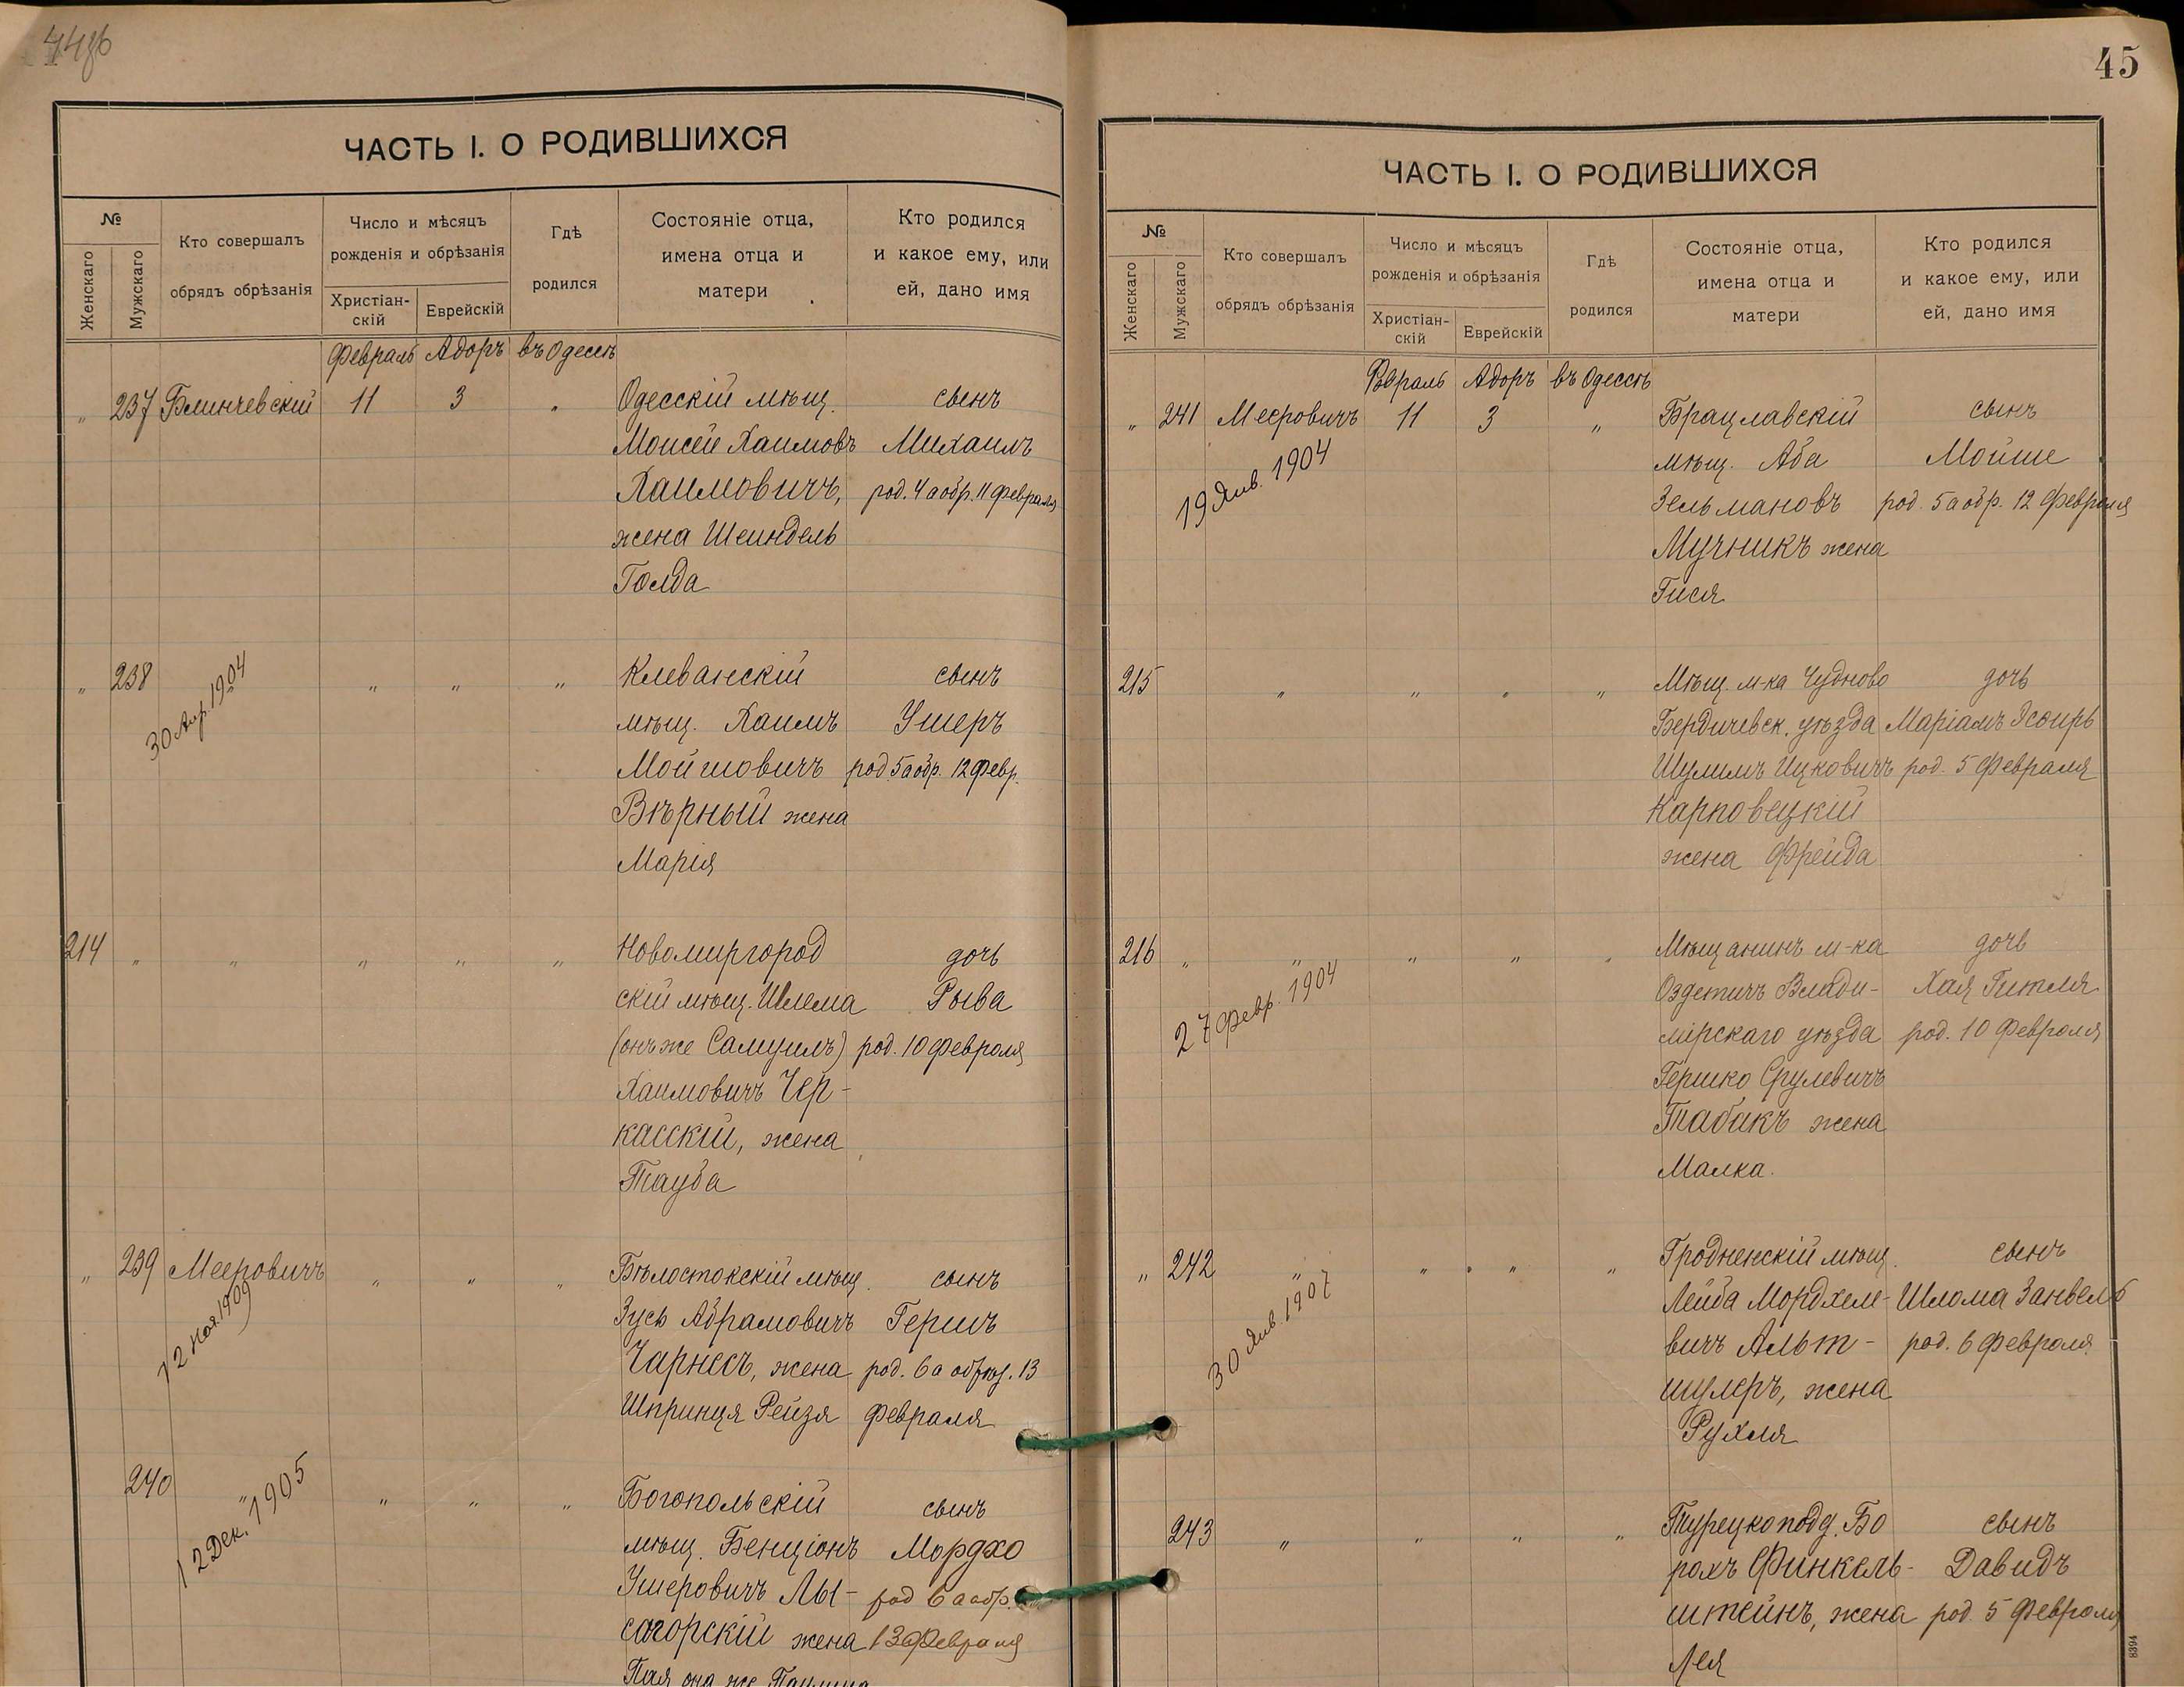 44об
ЧАСТЬ I. О РОДИВШИХСЯ
№
Женскаго
Мужскаго
Кто совершалъ
обрядъ обрѣзанія
Число и мѣсяцъ
рожденія и обрѣзанія
Христіан-
скій
Еврейскій
Гдѣ
родился
Состояніе отца,
имена отца и
матери
Кто родился
и какое ему, или
ей, дано имя
Февраль Адоръ въ Одессѣ
„ 237 Блинчевскій 11 3 „ Одесскій мѣщ. сынъ
Моисей Хаимовъ Михаилъ
Хаимовичъ, род. 4 а обр. 11 февраля
жена Шейндель
Голда
„ 238 „ „ „ „ Клеванскій сынъ
30 Апр. 1904
мѣщ. Хаимъ Ушеръ
Мойшовичъ род. 5 а обр. 12 февр.
Вѣрный жена
Марія
214 „ „ „ „ „ Новомиргород дочь
скій мѣщ. Шлема Рыва
(онъ же Самуилъ) род. 10 февроля
Хаимовичъ Чер-
касскій, жена
Тауба
„ 239 Мееровичъ „ „ „ Бѣлостокскій мѣщ. сынъ
12 Ноя. 1909
Зусь Абрамовичъ Гершъ
Чарнесъ, жена род. 6 а обрѣз. 13
Шпринця Рейзя февраля
240 „ „ „ „ Богопольскій сынъ
12 Дек. 1905
мѣщ. Бенціонъ Мордхо
Ушеровичъ Лы- род 6 а обр.
сагорскій жена 13 Февраля
Пая она же
45
ЧАСТЬ I. О РОДИВШИХСЯ
№
Женскаго
Мужскаго
Кто совершалъ
обрядъ обрѣзанія
Число и мѣсяцъ
рожденія и обрѣзанія
Христіан-
скій
Еврейскій
Гдѣ
родился
Состояніе отца,
имена отца и
матери
Кто родился
и какое ему, или
ей, дано имя
Февраль Адоръ въ Одессѣ
„ 241 Мееровичъ 11 3 „ Брацлавскій сынъ
19 Янв. 1904
мѣщ. Аба Мойше
Зельмановъ род. 5 а обр. 12 февраля
Мучникъ жена
Гися
215 „ „ „ „ Мѣщ. м-ка Чудново дочь
Бердичевск. уѣзда Маріамъ Эсѳирь
Шулимъ Ицковичъ род. 5 февраля
Карповецкій
жена Фрейда
216 „ „ „ „ „ Мѣщанинъ м-ка дочь
27 февр. 1904
Оздетичъ Влади- Хая Гитля
мірскаго уѣзда род. 10 февроля
Гершко Срулевичъ
Табакъ жена
Малка.
„ 242 „ „ „ „ Гродненскій мѣщ. сынъ
30 Янв. 1907
Лейба Мордхеле- Шлома Занвель
вичъ Альт- род. 6 февроля
шулеръ, жена
Рухля
243 „ „ „ „ Турецкоподд. Бо сынъ
рохъ Финкель- Давидъ
штейнъ, жена род. 5 февроля
Лея
8394